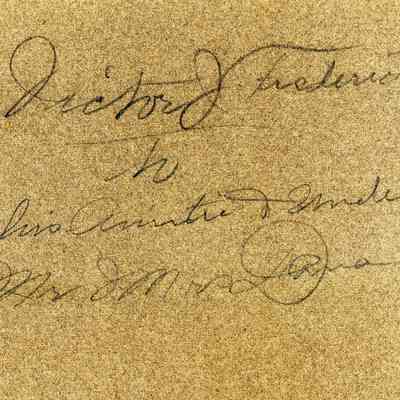 Victor J. Frederic
to
his Auntie & Uncle
Mr. & Mrs.